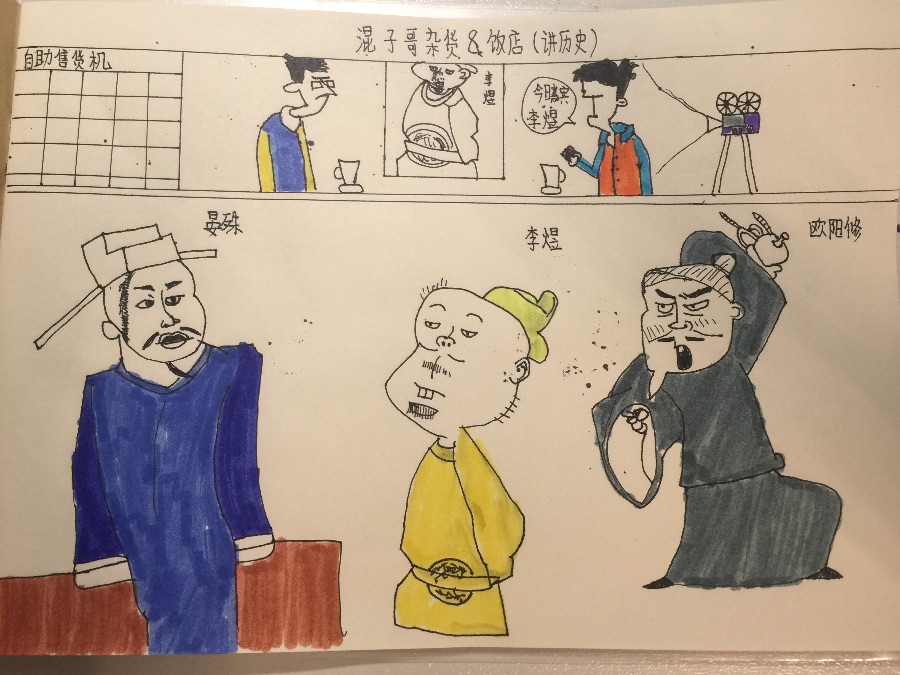 混子哥杂货&饭店(讲历史)
自助售货机
李煜
今日嘉宾
李煜
晏殊
李煜
欧阳修